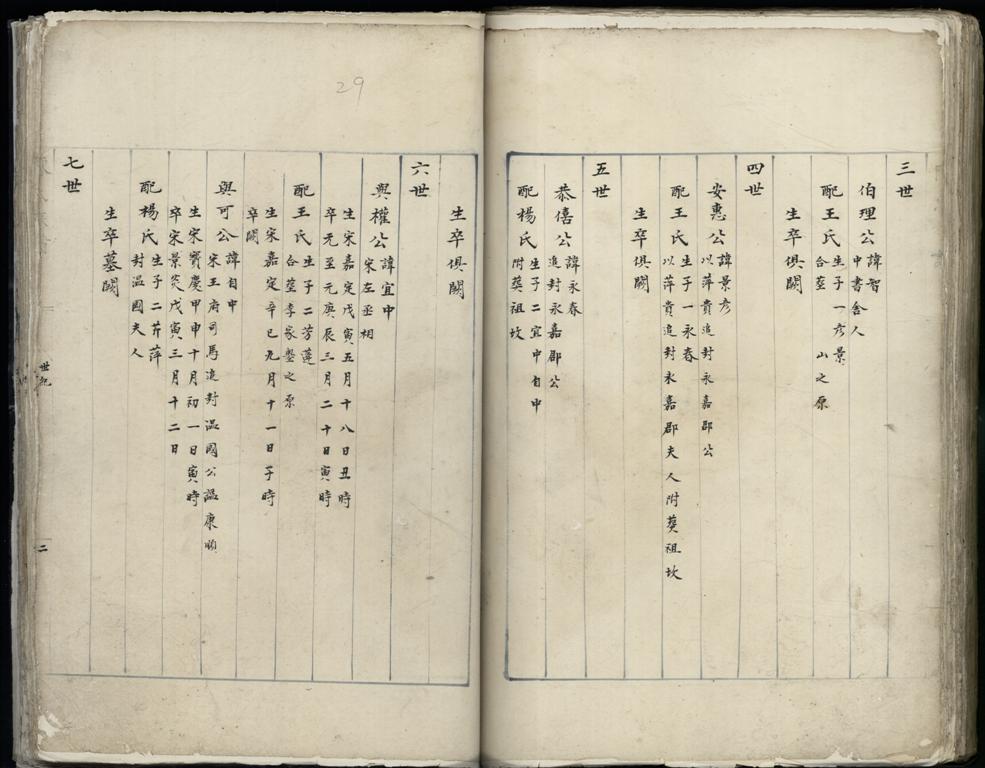 三世
伯理公諱智
中書舍人
配王氏生子一彥景
合塟山之原
生卒俱闕
四世
安惠公諱景彥
以萍貴追封永嘉郡公
配王氏生子一永春
以萍貴追封永嘉郡夫人附葬祖坎
生卒俱闕
五世
恭僖公諱永春
追封永嘉郡公
配楊氏生子二宜中自中
附葬祖坎
生卒俱闕
六世
與權公諱宜中
宋左丞相
生宋嘉定戊寅五月十八日丑時
卒元至元庚辰三月二十日寅時
配王氏生子二芳蓮
合塟李家嶴之原
生宋嘉定辛巳九月十一日子時
卒闕
與可公諱自中
宋王府司馬追封溫國公諡康順
生宋寶慶甲申十月初一日寅時
卒宋景炎戊寅三月十二日
配楊氏生子二芹萍
封溫國夫人
生卒墓闕
七世
世紀
二
29